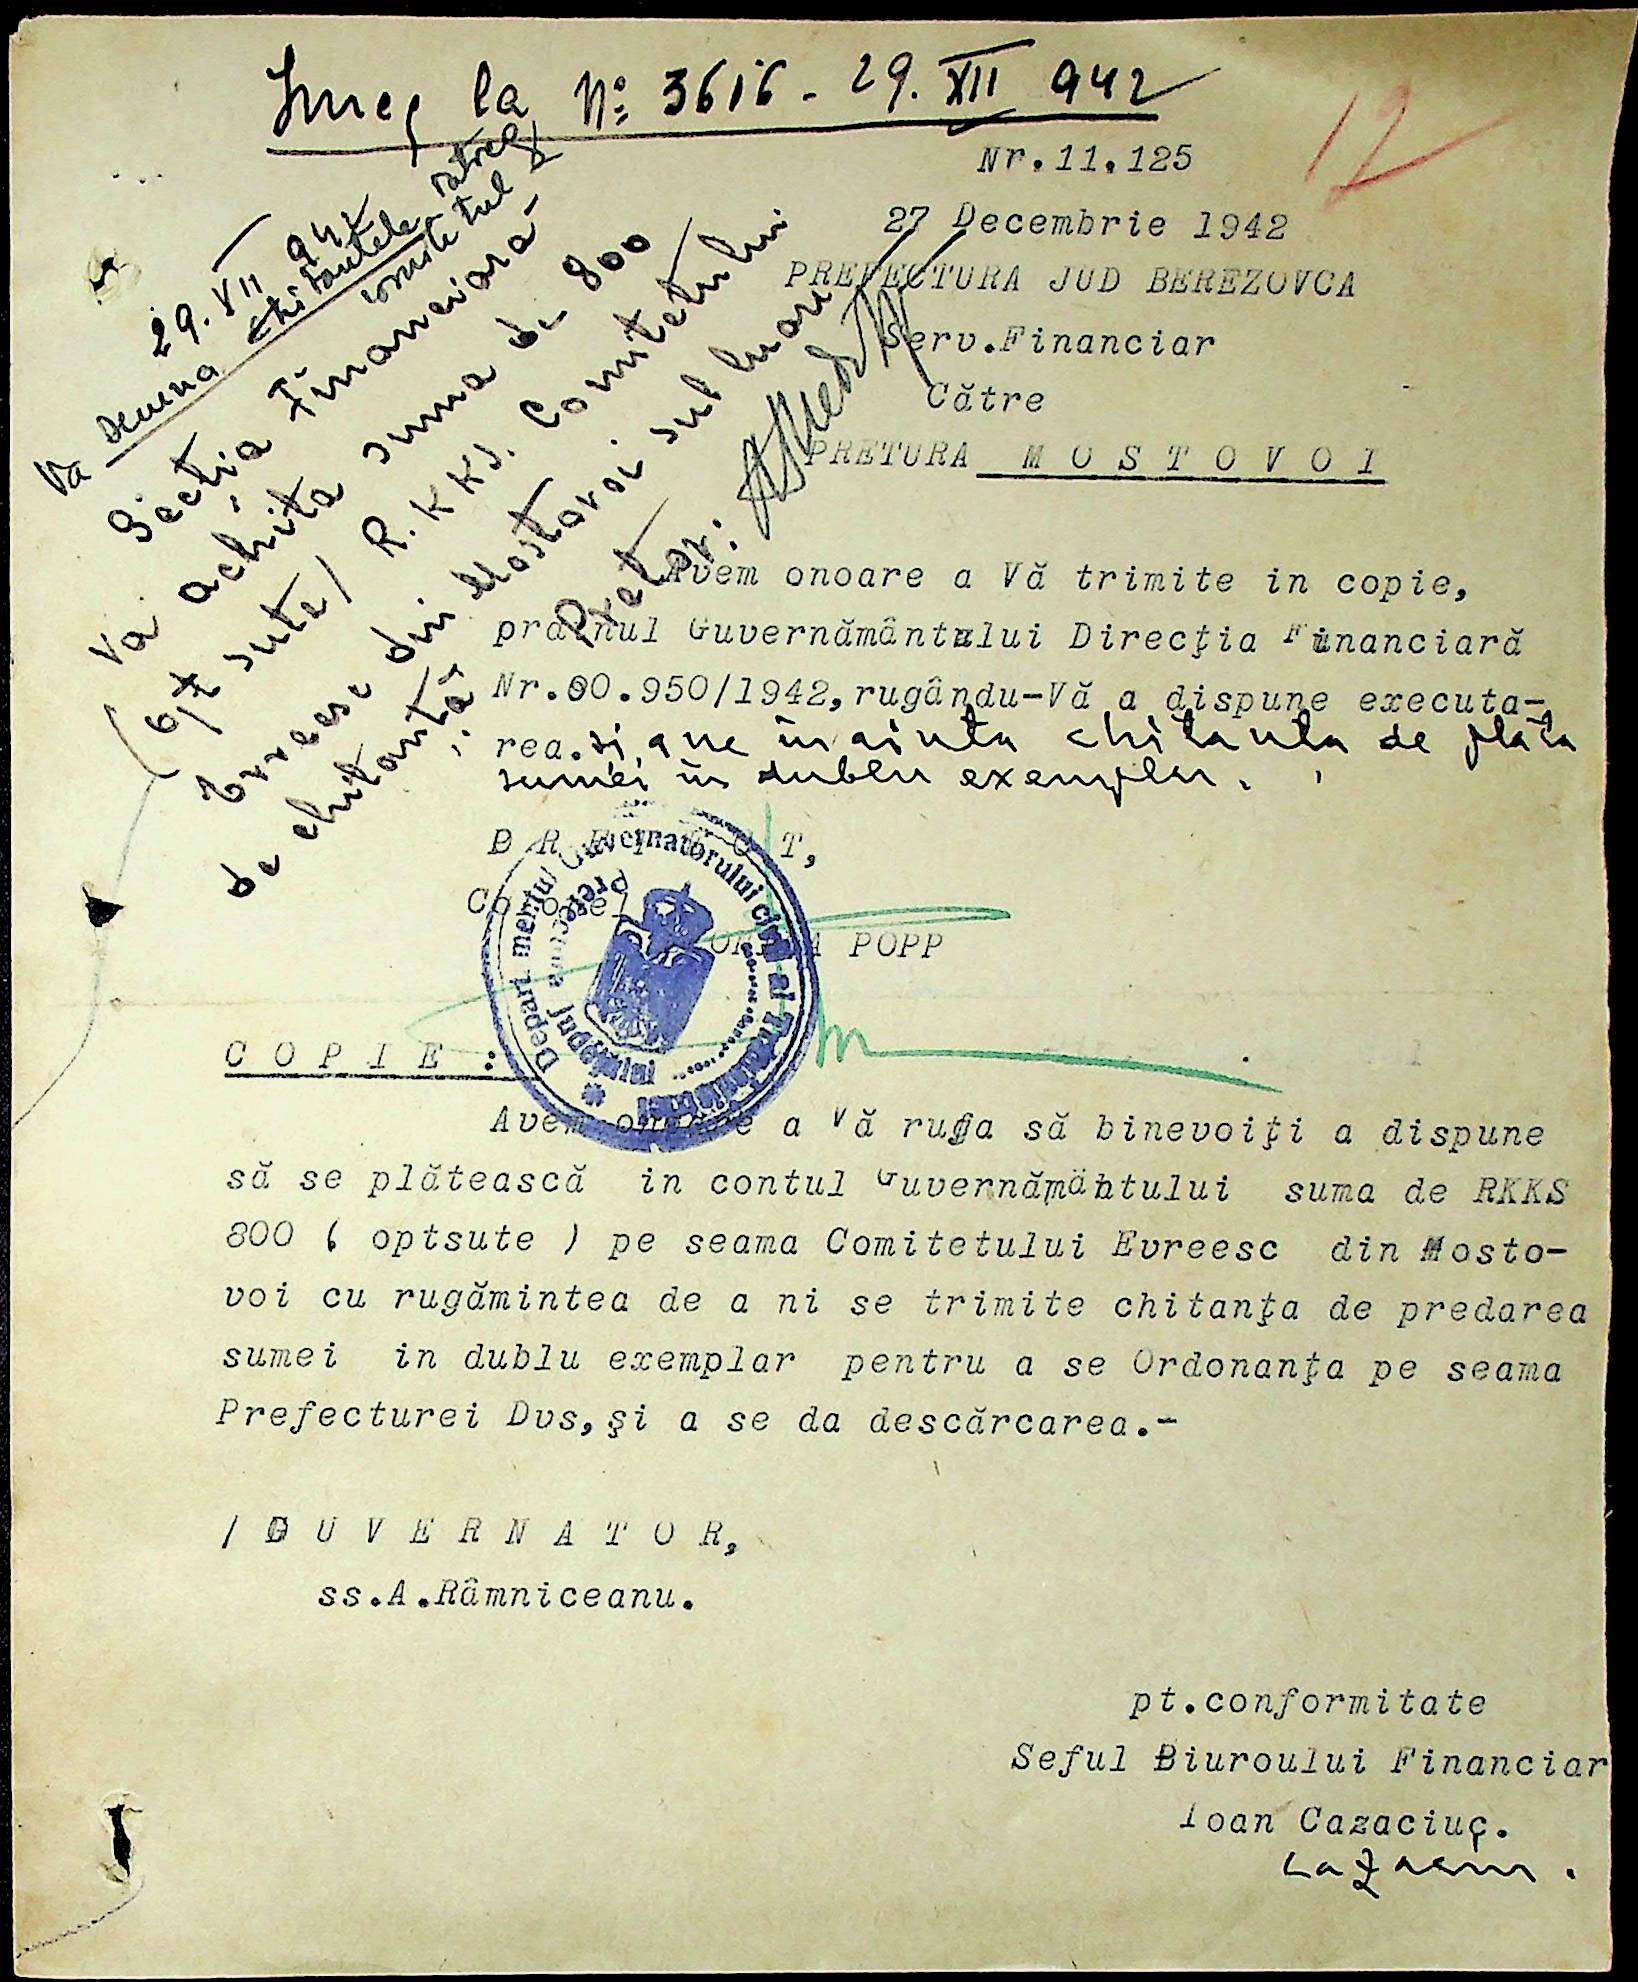 Înreg la No 3616 - 29. XII 942
12
Nr.11.125
27 Decembrie 1942
PREFECTURA JUD BEREZOVCA
Serv.Financiar
Către
PRETURA M O S T O V O I
29. XII 942
Va semna chitantele
comitetul
Secția Financiara
Va achita suma de 800
(opt sute/ R.KKS. Comitetului
Evreesc din Mostovoi sub luare
de chitanță
Pretor:
Avem onoare a Vă trimite in copie,
Guvernământului Direcţia Financiară
Nr.80.950/1942,rugându-Vă a dispune executa-
rea.si a ne inainta chitanta de plata
sumei in dublu exemplar.
P R E F E C T,
Colonel
POPP
Departamentul Guvernatorului civil al Transnistriei
Prefectura Județului
C O P I E :
Avem onoare a Vă ruga să binevoiţi a dispune
să se plătească in contul Guvernământului suma de RKKS
800 ( optsute ) pe seama Comitetului Evreesc din Mosto-
voi cu rugămintea de a ni se trimite chitanţa de predarea
sumei in dublu exemplar pentru a se Ordonanţa pe seama
Prefecturei Dvs,şi a se da descărcarea.-
/ G U V E R N A T O R,
ss.A.Râmniceanu.
pt.conformitate
Seful Biuroului Financiar
Ioan Cazaciuc.